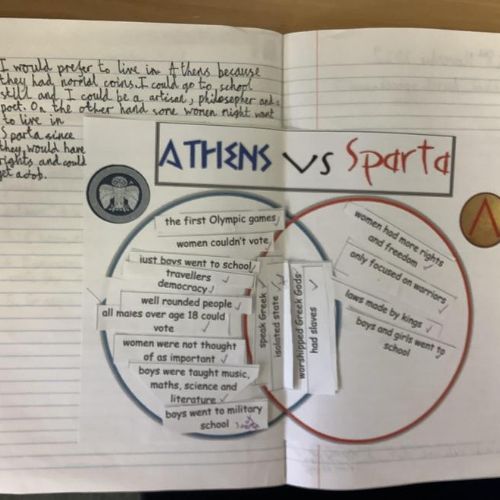 I would prefer to live in Athens because
they had normal coins. I could go to school
still and I could be a artiset, philosepher and a
poet. On the other hand some women might want
to live in
Sparta since
they would have
rights and could
get a job.
ATHENS vs Sparta
the first Olympic games
women couldn't vote
just boys went to school
travellers
democracy
well rounded people
all males over age 18 could
vote
women were not thought
of as important
boys were taught music,
maths, science and
literature
boys went to military
school
speak Greek
isolated state
worshipped Greek Gods
had slaves
women had more rights
and freedom
only focused on warriors
laws made by kings
boys and girls went to
school